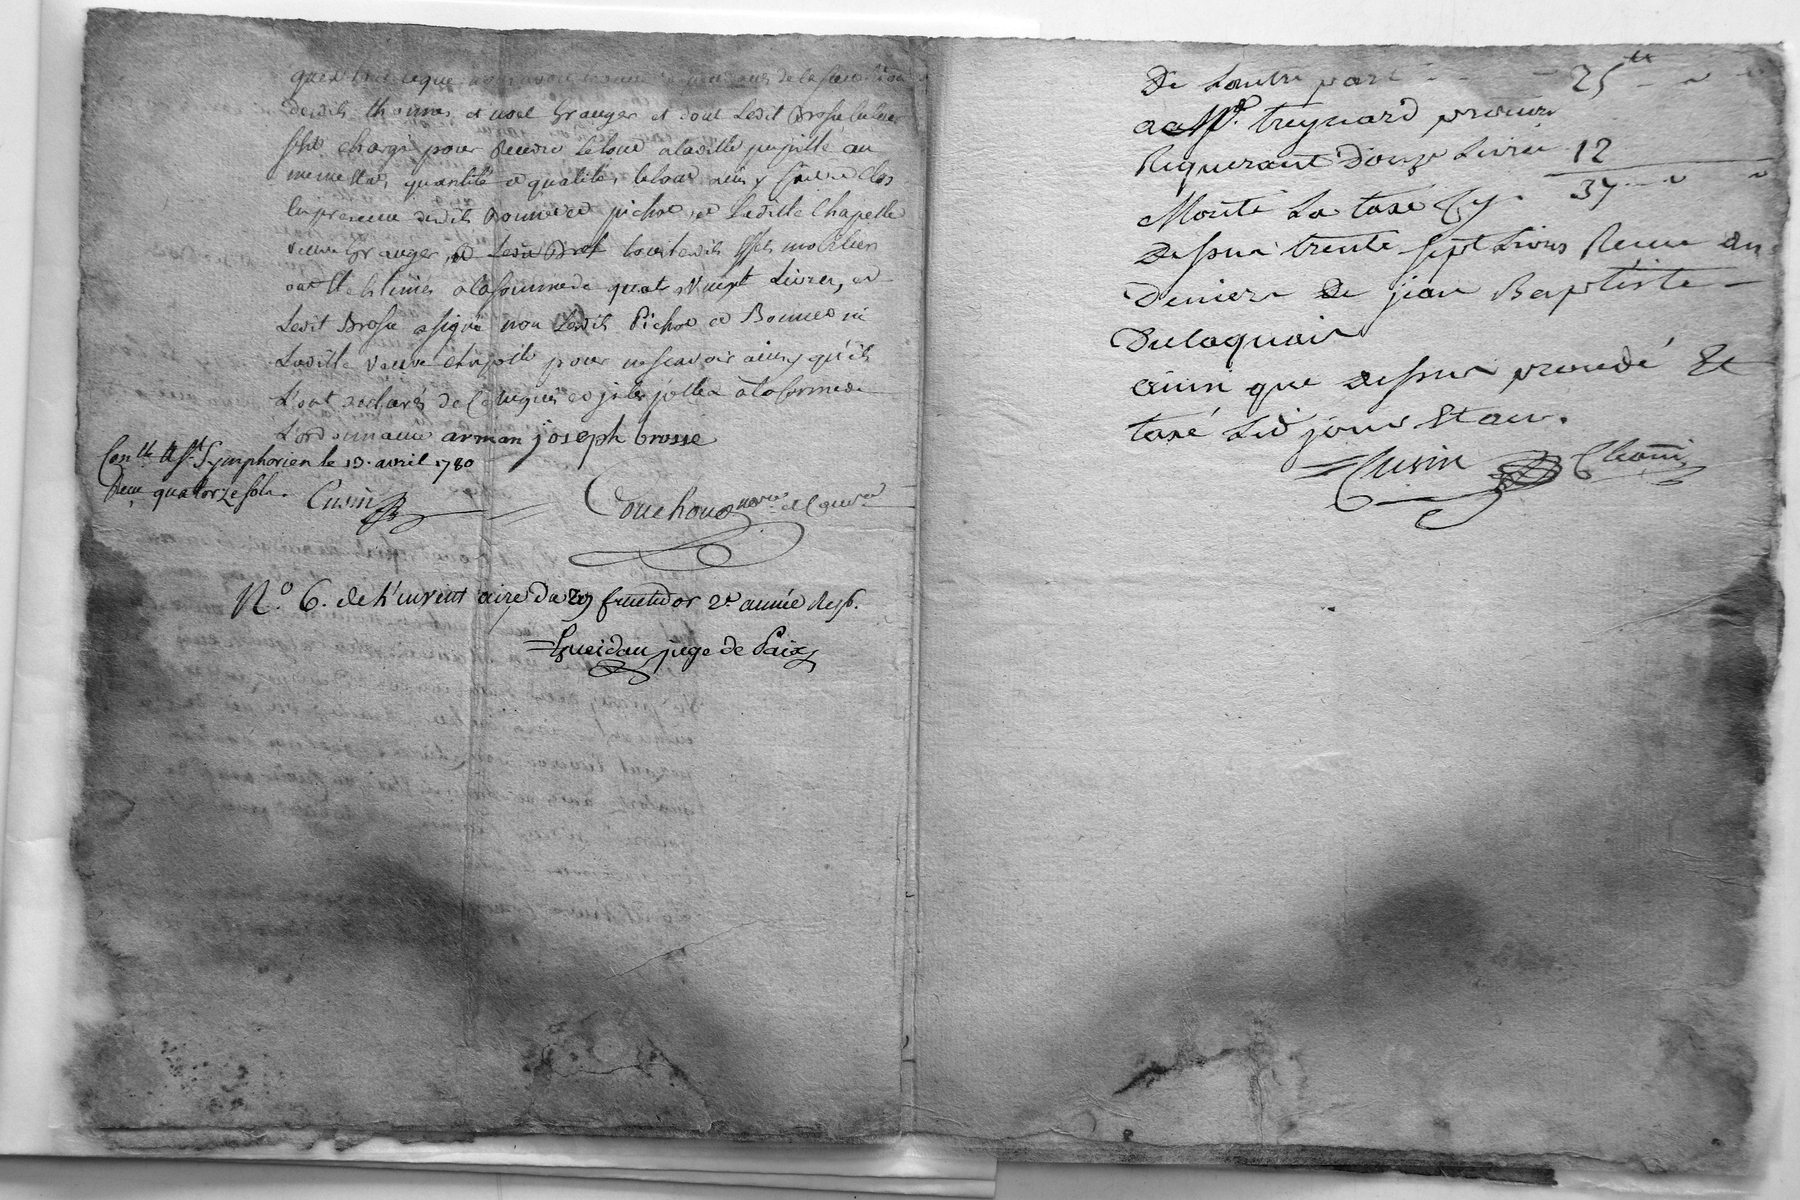 desdits thoinus et noel Granger et dont Ledit Brosse
sest chargé pour Rendre Letout aladitte pupille au
meme Etat, quantité et qualité, letout ainsy fait et Clos
En presence desdits Bonnet et pichot, et Laditte Chapelle
veuve Granger, et Ledit tous lesdits Effets mobiliers
ont Etés Estimés alasomme de quatrevingt Livres, et
Ledit Brosse asigné non Lesdits Pichot et Bonnet ni
Laditte veuve chapelle pour nescavoir ainsy qu'ils
L'ont declarés de Ce Requis et alaforme de
L'ordonnance arman joseph brosse
Con.lle A St. Symphorien le 13. avril 1780
Recu quatorze sols. Cusin
Couchoud
N.o 6. de L'inventaire Du 29 fructidor 2.e année Rep.
Gueidan juge de Paix
De Lautre part 25 tt
a M.e treynard procureur
Requerant Douze Livres 12
37
Monte La taxe Cy.
Dessus trente sept Livres Recue des
Deniers De jean Baptiste
Dulaquais
ainsi que dessus procedé Et
taxé Led jour Et an.
Cusin